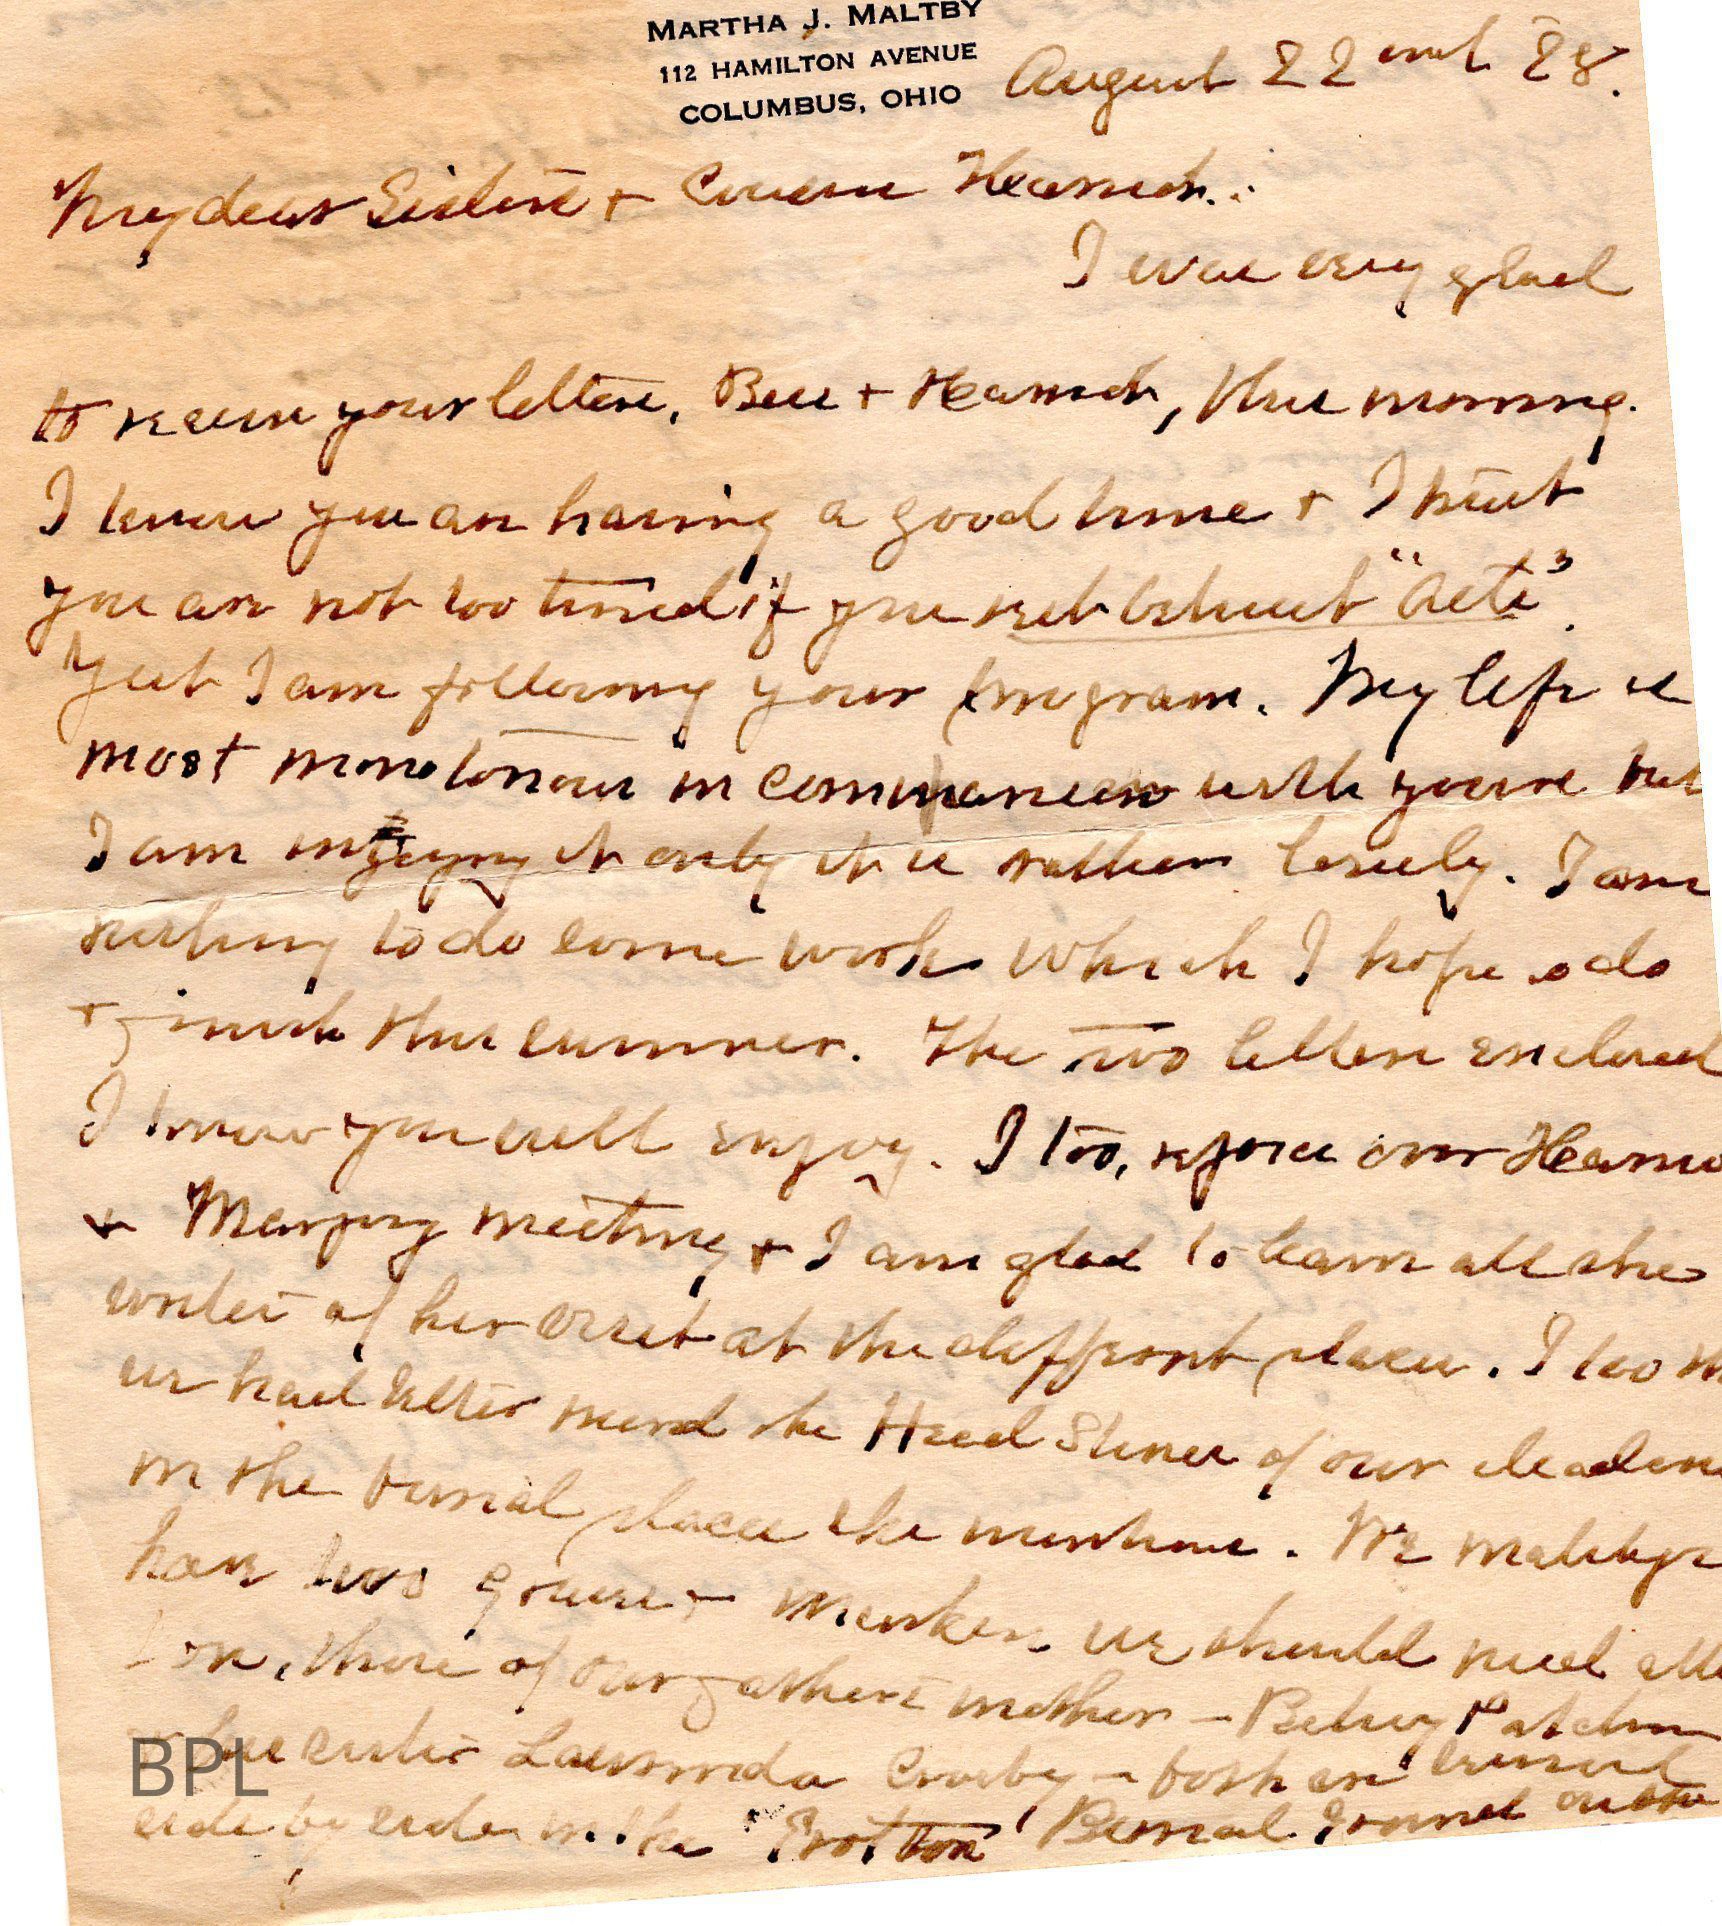 MARTHA J. MALTBY
112 HAMILTON AVENUE
COLUMBUS, OHIO
August 22nd 28.
My dear Sisters + Cousin Hannah.:
I was very glad
to receive your letters, Bess + Hannah, this morning.
I know you are having a good time + I trust
you are not too tired if you rest betwixt "Acts".
Yest I am following your program. My life is
most monotonous in comparison with yours but
I am enjoying it only it is rather lonely. I am
resting to do some work which I hope to do
+ finish this summer. The two letters enclosed
I know you will enjoy. I too, rejoice over
+ Marjory meeting + I am glad to learn all she
writes of her visit at the different places. I too
we had better mend the Head Stones of our
in the burial places she mentions. We Maltbys
have two graves + markers we should
of our father's mother - Betsey
sister Crosby - both are buried
side by side in the Burial Ground
BPL